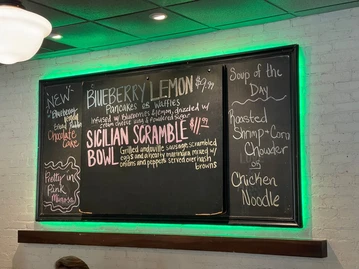 NEW
Blueberry
Bread Pudding
Chocolate
Cake
Pretty in
Pink
Mimosa
BLUEBERRY LEMON $9.99
Pancakes or Waffles
Infused w/ Blueberries & lemon, drizzled w/
cream cheese icing & powdered sugar
SICILIAN SCRAMBLE $11.99
BOWL
Grilled andouille sausage, scrambled
eggs and a hearty marinara mixed w/
onions and peppers served over hash
browns
Soup of the
Day
Roasted
Shrimp & Corn
Chowder
or
Chicken
Noodle